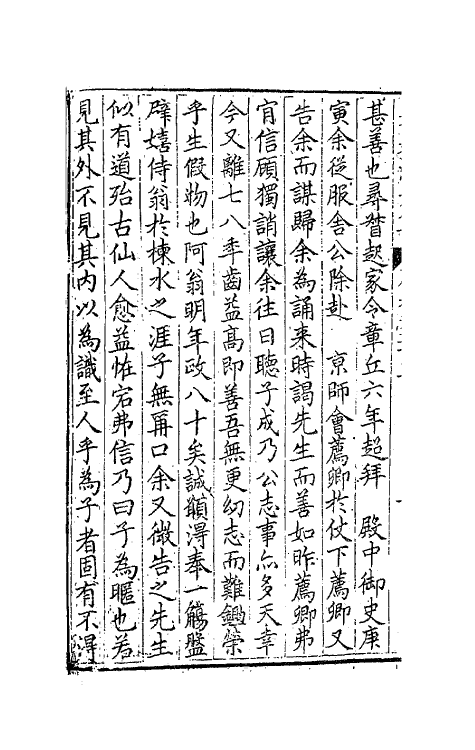 甚善也尋督起家令章丘六年超拜　殿中御史庚
寅余從服舍公除赴　京師會薦卿於仗下薦卿又
告余而謀歸余為誦来時謁先生而善如昨薦卿弗
肎信顧獨誚讓余往日聽子成乃公志事亦多天幸
今又離七八年齒益高即善吾無更幼志而難鑑榮
乎生假物也阿翁明年政八十矣誠額得奉一觴盤
辟嬉侍翁於楝水之涯子無苒口余又微告之先生
似有道殆古仙人愈益怪宕弗信乃曰子為暱也若
見其外不見其内以為識至人乎為子者固有不得